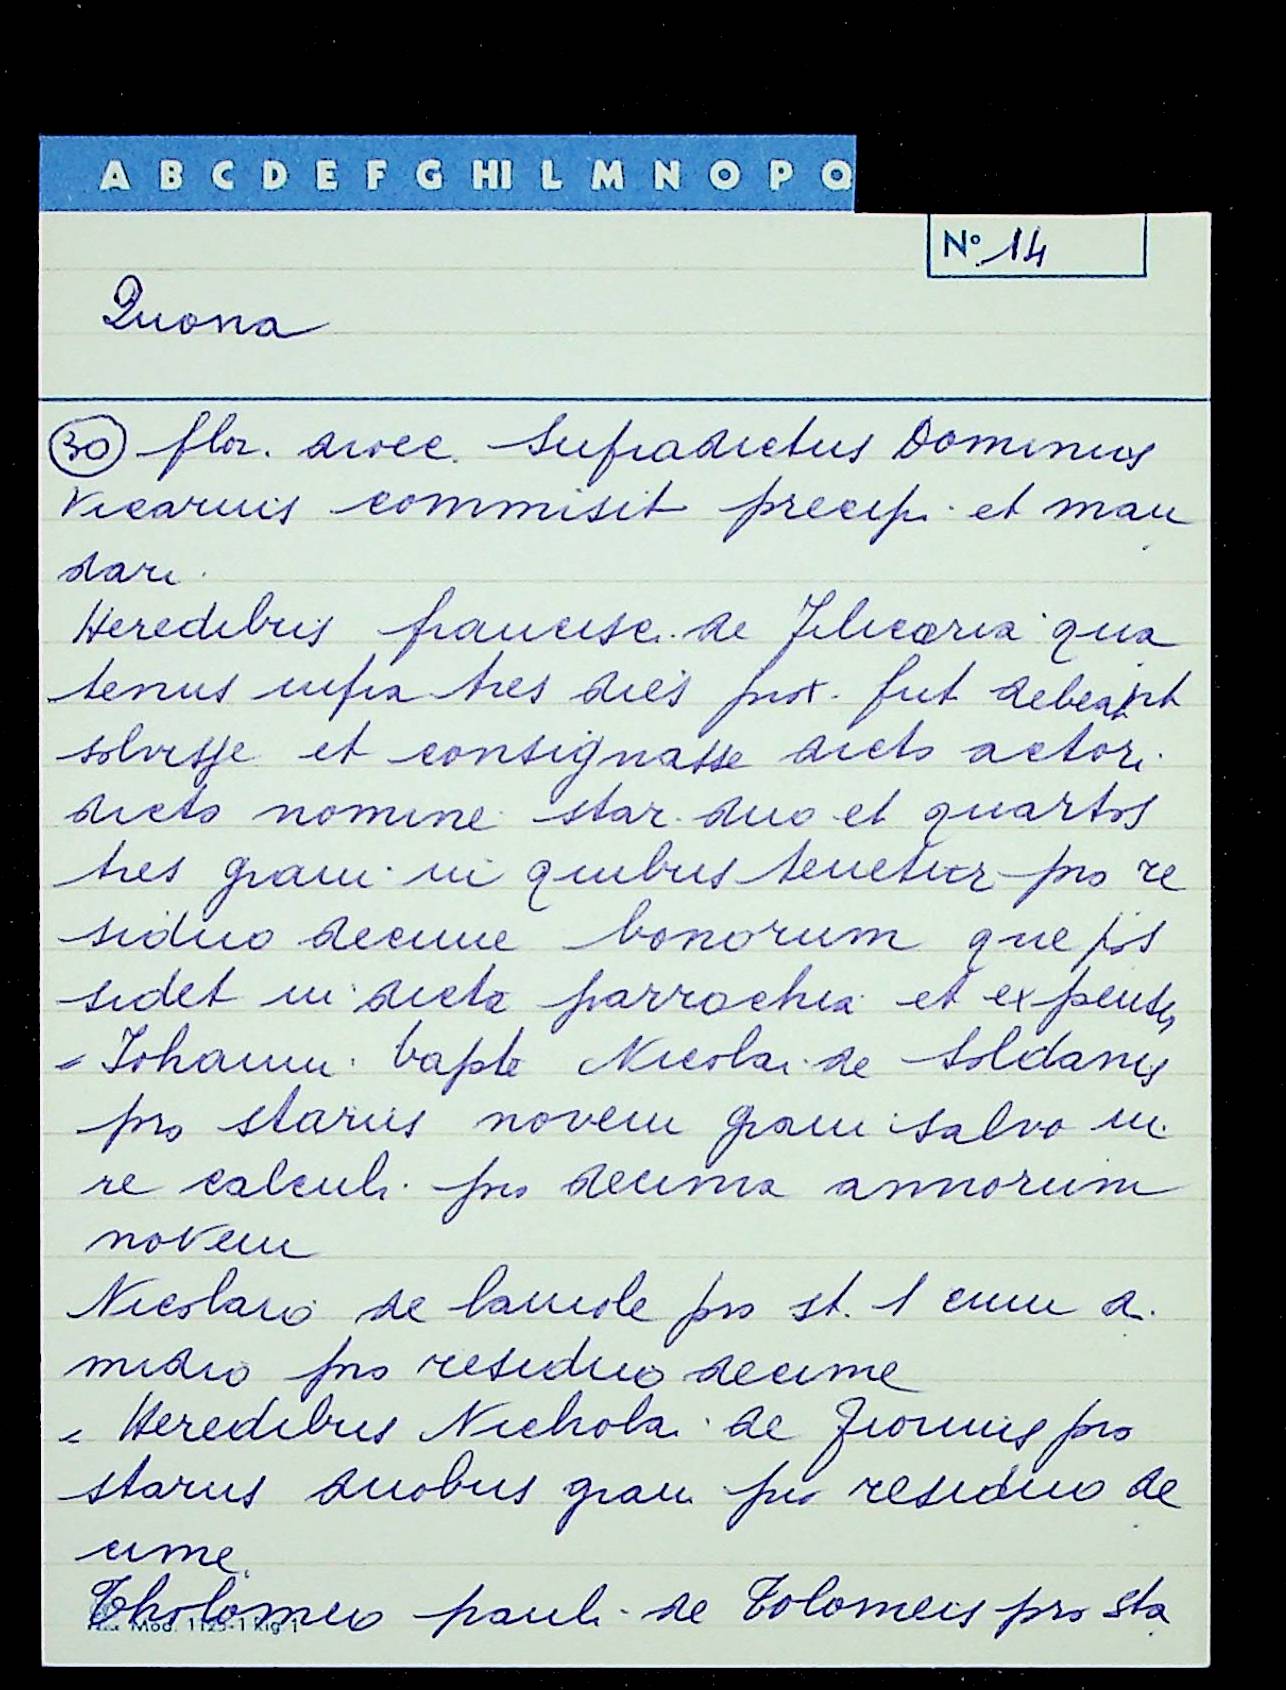 A B C D E F G HI L M N O P Q
N° 14
Quona
30 flor. dioec. Supradictus Dominus
Vicarius commisit precipi et man
dari.
Heredibus francisci de Filicaria qua
tenus infra tres dies prox. fut debeant
solvisse et consignasse dicto actori
dicto nomine star. duo et quartos
tres grani in quibus tenetur pro re
siduo decime bonorum que pos
sidet in dicta parrochia et expensis
= Iohanni bapte Nicolai de Soldanis
pro stariis novem grani salvo iu
re calculi pro decima annorum
novem
Nicolaio de lamole pro st. 1 cum di
midio pro residuo decime
= Heredibus Nicholai de
pro
stariis duobus grani pro residuo de
cime
Tholomeo pauli de Tolomeis pro sta
Mod. 1125-1 Rig 1